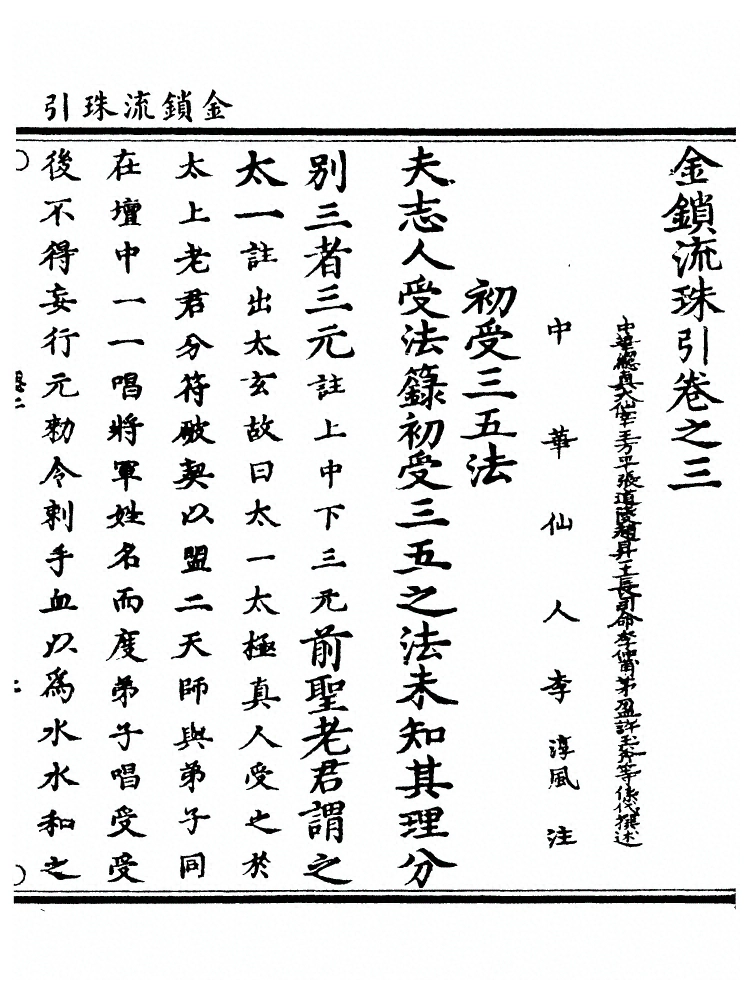 金鎖流珠引
金鎖流珠引卷之三
中華總真大仙宰王方平張道陵趙昇王長司命李仲甫茅盈許玉斧等係代撰述
中華仙人李淳風注
初受三五法
夫志人受法籙初受三五之法未知其理分
別三者三元註上中下三元前聖老君謂之
太一註出太玄故曰太一太極真人受之於
太上老君分符破契以盟二天師與弟子同
在壇中一一唱將軍姓名而度弟子唱受受
後不得妄行元勑令刺手血以為水水和之